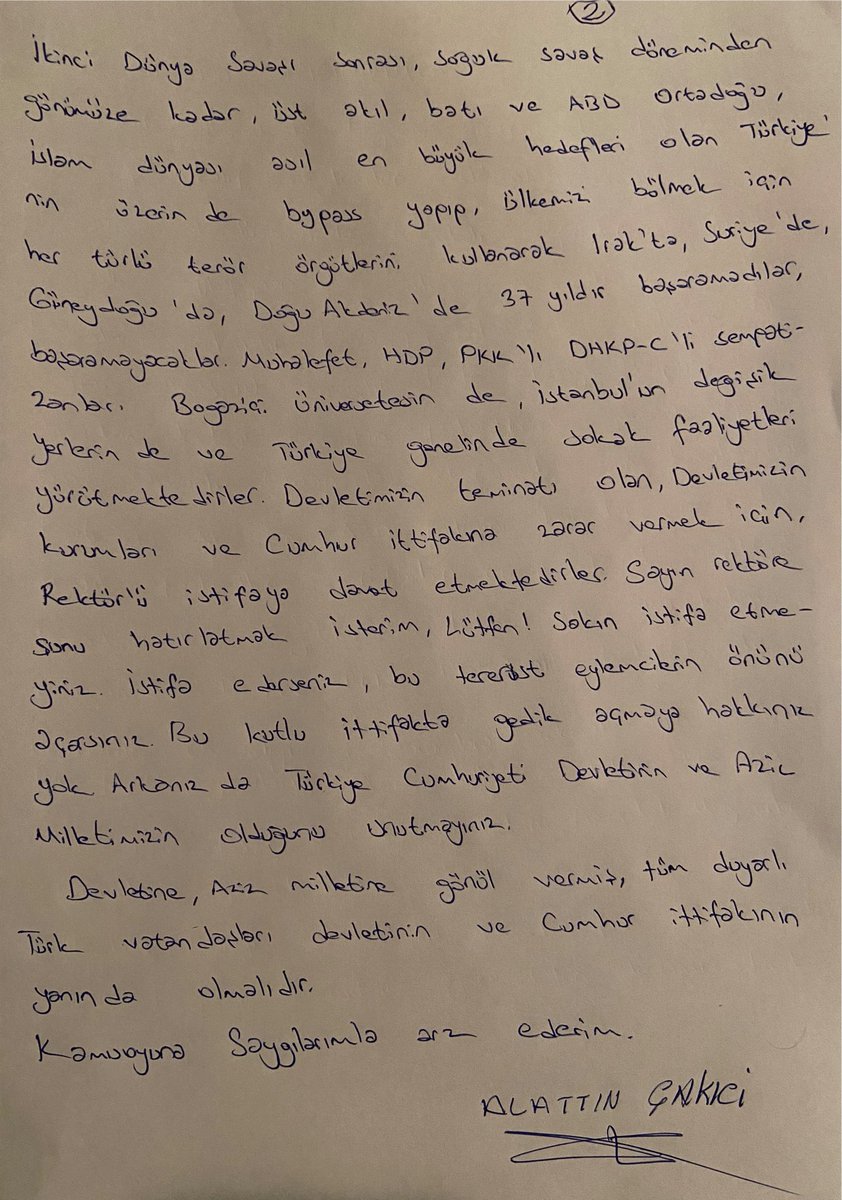 2
İkinci Dünya Savaşı sonrası, soğuk savaş döneminden
günümüze kadar, üst akıl, batı ve ABD Ortadoğu,
İslam dünyası asıl en büyük hedefleri olan Türkiye'
nin üzerin de bypass yapıp, ülkemizi bölmek için
her türlü terör örgütlerini kullanarak Irak'ta, Suriye'de,
Güneydoğu'da, Doğu Akdeniz'de 37 yıldır başaramadılar,
başaramayacaklar. Muhalefet, HDP, PKK'lı DHKP-C'li sempati-
zanları. Bogaziçi Üniversitesin de, İstanbul'un değişik
yerlerin de ve Türkiye genelinde sokak faaliyetleri
yürütmektedirler. Devletimizin teminatı olan, Devletimizin
kurumları ve Cumhur ittifakına zarar vermek için,
Rektör'ü istifaya davet etmektedirler. Sayın rektöre
şunu hatırlatmak isterim, Lütfen! Sakın istifa etme-
yiniz. İstifa ederseniz, bu terörist eylemcilerin önünü
açarsınız. Bu kutlu ittifakta gedik açmaya hakkınız
yok. Arkanız da Türkiye Cumhuriyeti Devletinin ve Aziz
Milletimizin olduğunu unutmayınız.
Devletine, Aziz milletine gönül vermiş, tüm duyarlı
Türk vatandaşları devletinin ve Cumhur ittifakının
yanın da olmalıdır.
Kamuoyuna Saygılarımla arz ederim.
ALATTIN ÇAKICI